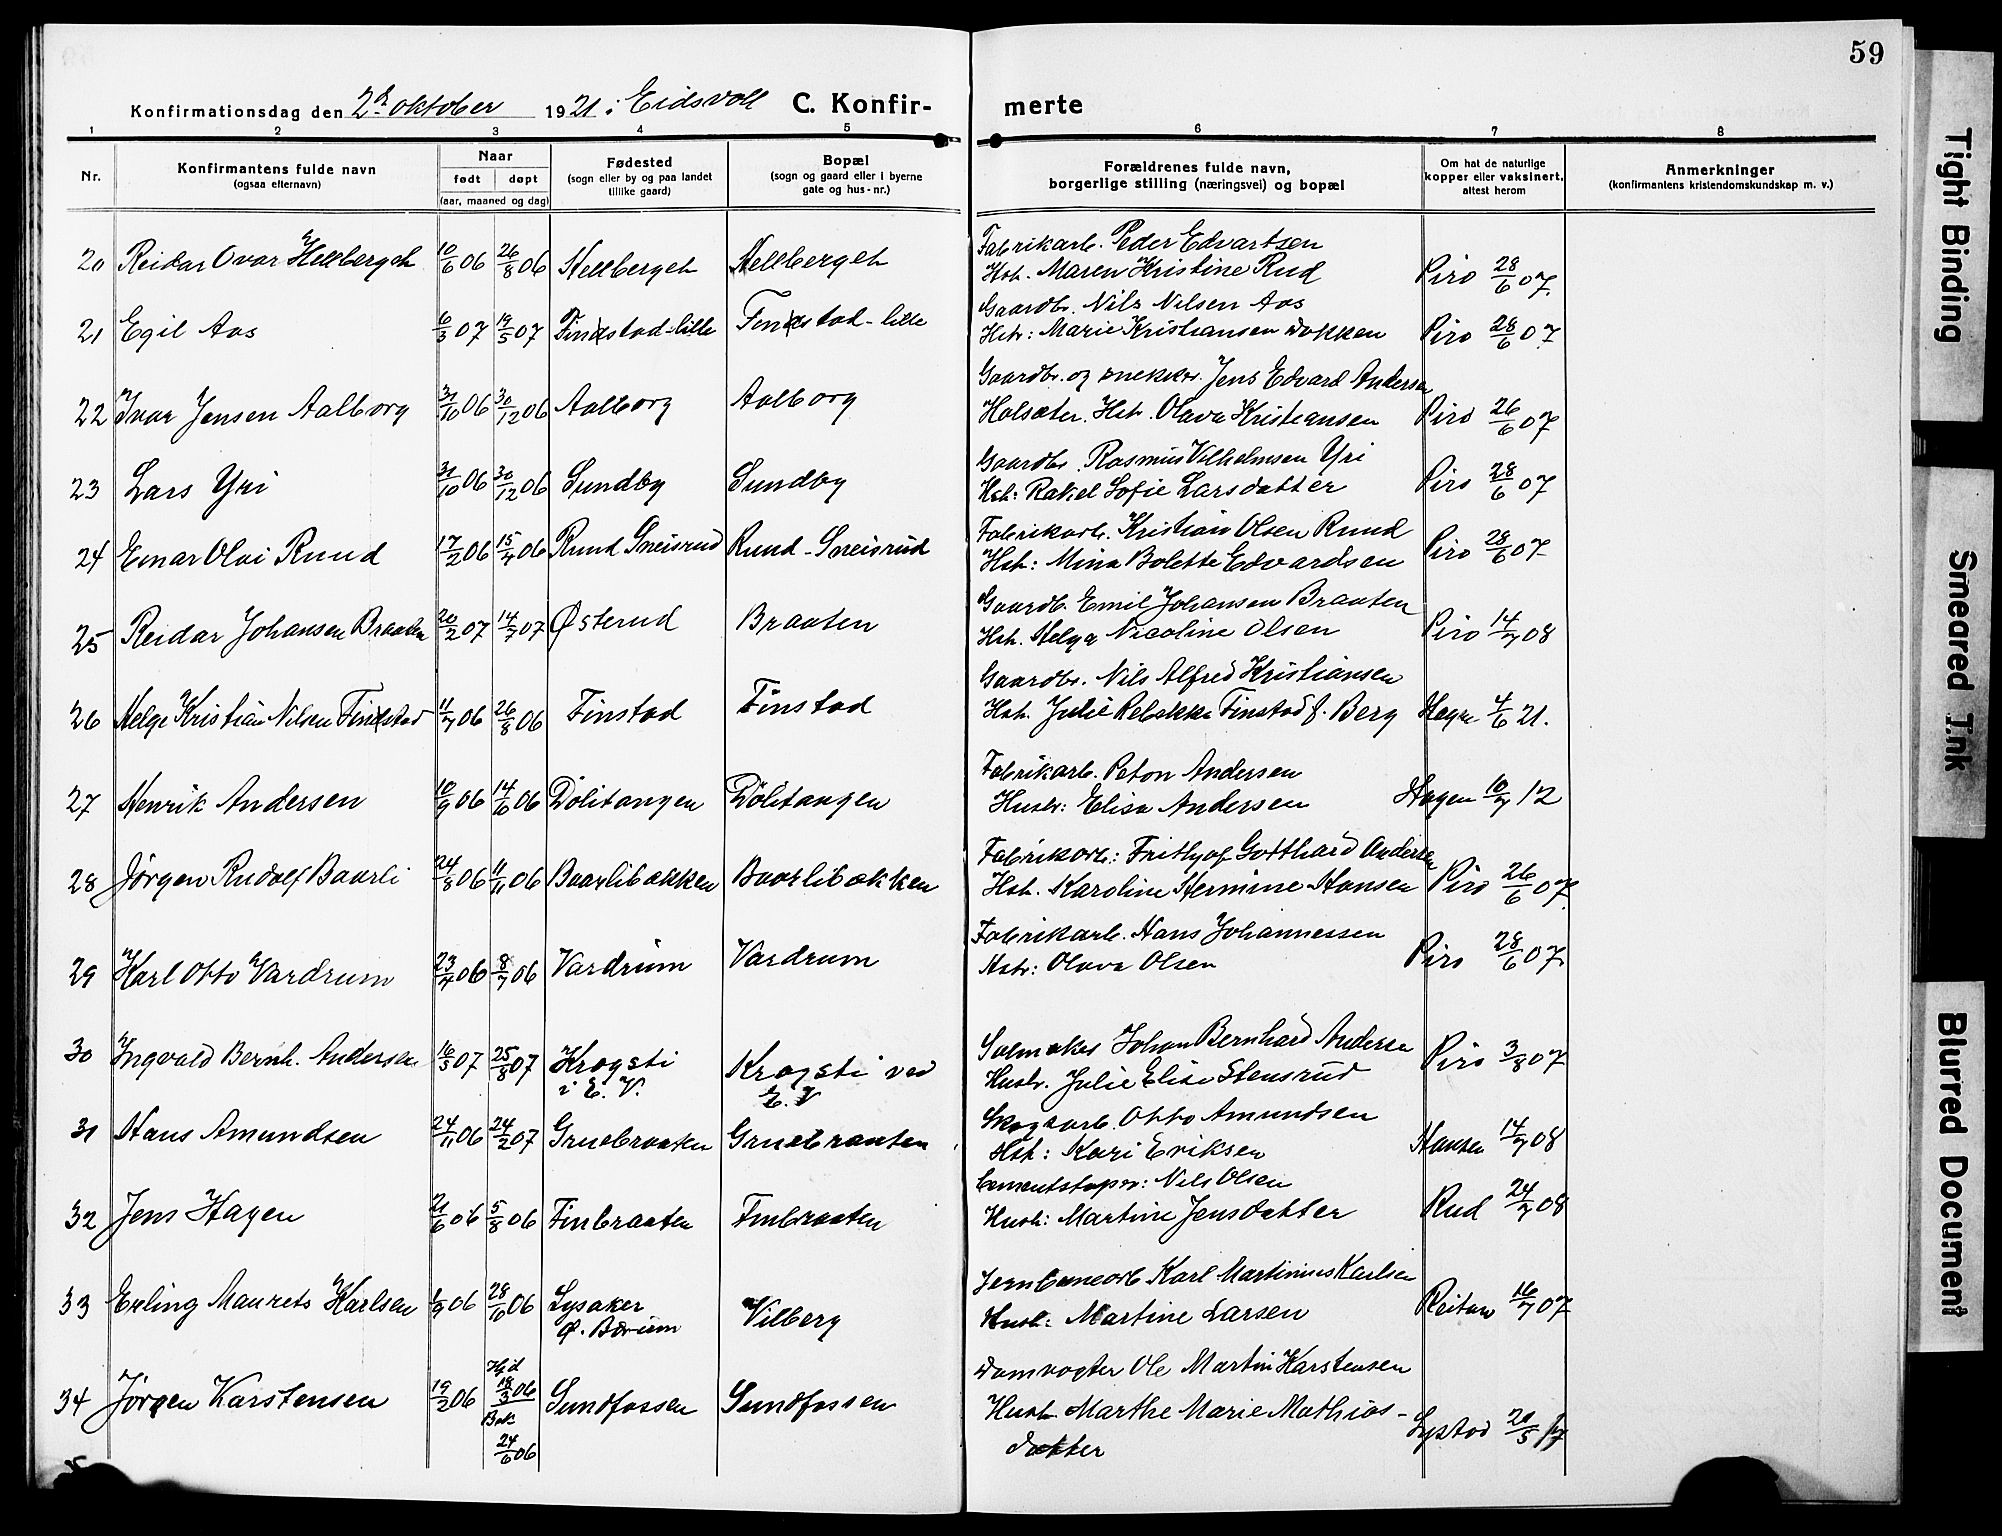 59
Konfirmationsdag den 2d oktober 1921 i Eidsvoll C. Konfirmerte
1 2 3 4 5 6 7 8
Nr.
Konfirmantens fulde navn
(ogsaa efternavn)
Naar
født døpt
(aar, maaned og dag)
Fødested
(sogn eller by og paa landet
tillike gaard)
Bopæl
(sogn og gaard eller i byerne
gate og hus-nr.)
Forældrenes fulde navn,
borgerlige stilling (næringsvei) og bopæl
Om hat de naturlige
kopper eller vaksinert,
attest herom
Anmerkninger
(konfirmantens kristendomskundskap m. v.)
Fabrikarb. Peder Edvartsen
20 Reidar Ovar Hellberget 10/6 06 26/8 06 Hellberget Hellberget Hst. Maren Kristine Rud Piro 28/6 07.
Gaardbr. Nils Nilsen Aas
21 Egil Aas 6/3 07 19/5 07 Finstad-lille Finstad-lille Hstr: Marie Kristiansen Dokken Piro 28/6 07
Gaardbr. og snekker. Jens Edvard Andersen
22 Ivar Jensen Aalborg 31/10 06 30/12 06 Aalborg Aalborg Holsæter. Hstr. Olava Kristiansen Piro 26/6 07
Gaardbr. Rasmus Vilhelmsen Yri
23 Lars Yri 31/10 06 30/12 06 Sundby Sundby Hst: Rakel Sofie Larsdatter Piro 28/6 07
Fabrikarb. Kristian Olsen Ruud
24 Einar Olai Ruud 17/2 06 15/4 06 Ruud Sneisrud Ruud-Sneisrud Hst: Mina Bolette Edvardsen Piro 28/6 07
Gaardb. Emil Johansen Braaten
25 Reidar Johansen Braaten 20/2 07 14/7 07 Østerud Braaten Hst. Helga Nicoline Olsen Piro 14/7 08
Gaardbr. Nils Alfred Kristiansen
26 Helge Kristian Nilsen Finstad 11/7 06 26/8 06 Finstad Finstad Hst. Julie Rebekka Finstad f. Berg Hegre 4/6 21.
Fabrikarb. Peton Andersen
27 Henrik Andersen 10/9 06 14/10 06 Dölitangen Dölitangen Hustr: Elisa Andersen Hagen 10/7 12
Fabrikarb: Frithjof Gotthard Andersen
28 Jørgen Rudolf Baarli 24/8 06 11/11 06 Baarlibakken Baarlibakken Hst. Karoline Hermine Hansen Piro 26/6 07.
Fabrikarb. Hans Johannessen
29 Karl Otto Vardrum 23/4 06 8/7 06 Vardrum Vardrum Hstr: Olava Olsen Piro 28/6 07.
Salmaker Johan Bernhard Anderse
30 Ingvald Bernh. Andersen 16/5 07 25/8 07 Krogsti Krogsti ved Hustr. Julie Elise Stensrud Piro 3/8 07
i E. V. E. V
Skogsarb. Otto Amundsen
31 Hans Amundsen 24/11 06 24/2 07 Gruebraaten Gruebraaten Hst: Kari Eriksen Hansen 14/7 08
Cementstøper: Nils Olsen
32 Jens Hagen 21/6 06 5/8 06 Finbraaten Finbraaten Hustr: Martine Jensdatter Rud 24/7 08
Jernbanearb Karl Martinius Karlsen
33 Erling Maurets Karlsen 1/9 06 28/10 06 Lysaker Vilberg Hustr: Martine Larsen Reitan 16/7 07
Ø. Bærum
Damvogter Ole Martin Karstensen
34 Jørgen Karstensen 19/2 06 Hjd 18/3 06 Sundfossen Sundfossen Hustr. Marthe Marie Mathias-
Bek 24/6 06 datter Lystad 20/5 17
Tight Binding
Smeared Ink
Blurred Document